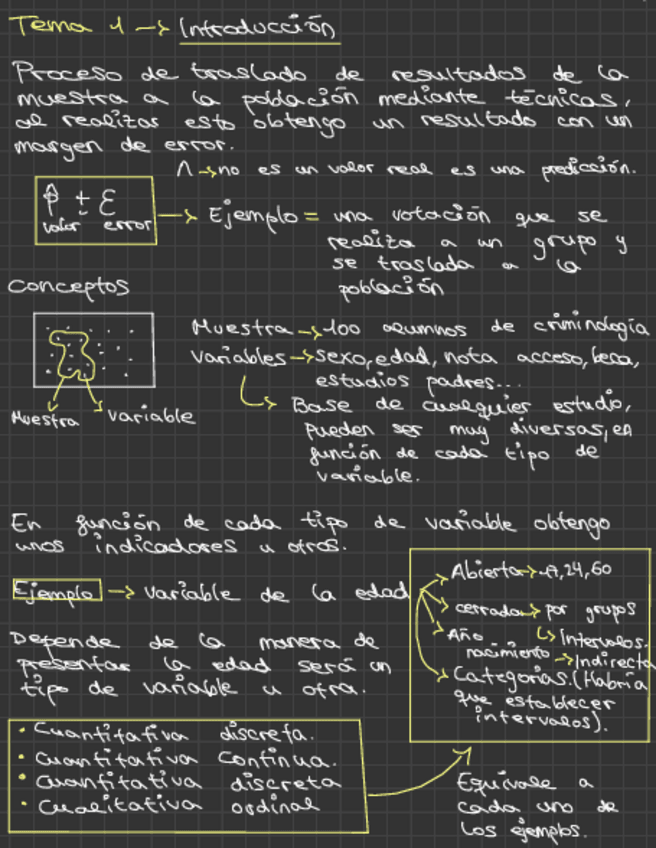 Tema 1 → Introducción
Proceso de traslado de resultados de la
muestra a la población mediante técnicas,
al realizar esto obtengo un resultado con un
margen de error.
Λ → no es un valor real es una predicción.
p̂ ± ε
valor error
→ Ejemplo = una votación que se
realiza a un grupo y
se traslada a la
población
Conceptos
Muestra → 100 alumnos de criminología
Variables → sexo, edad, nota acceso, beca,
estudios padres...
Muestra variable
↳ Base de cualquier estudio,
pueden ser muy diversas, en
función de cada tipo de
variable.
En función de cada tipo de variable obtengo
unos indicadores u otros.
Ejemplo → variable de la edad
Abierta → 17, 24, 60
cerrada → por grupos
↳ Intervalos.
Año
nacimiento → Indirecta
Categorías. (Habría
que establecer
intervalos).
Depende de la manera de
presentar la edad será un
tipo de variable u otra.
• Cuantitativa discreta.
• Cuantitativa continua.
• Cuantitativa discreta
• Cualitativa ordinal
Equivale a
cada uno de
los ejemplos.